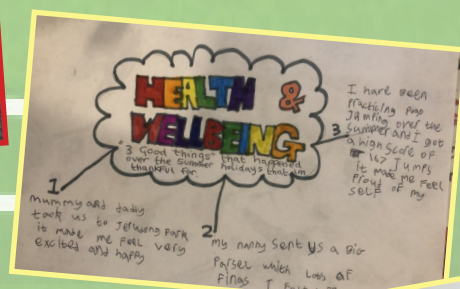 HEALTH &
WELLBEING
3 Good things that happened
over the summer holidays that im
thankful for
1
mummy and dady
took us to Jerudong Park
it made me feel very
excited and happy
2
my nanny sent us a big
Parsel which Lots of
Fings I
3
I have been
Practicing Pogo
Jumping over the
summer and I got
a high score of
167 Jumps
it made me feel
Proud of my
self